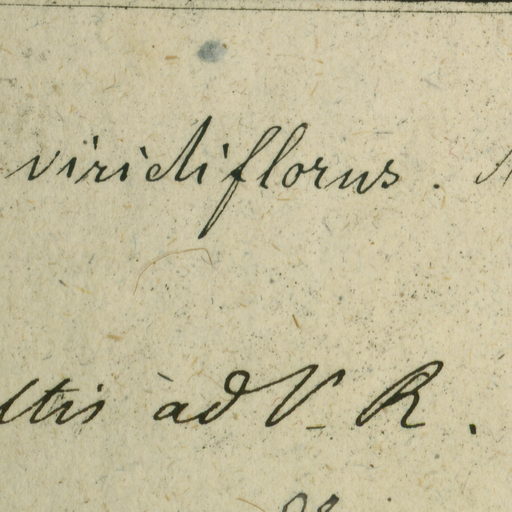 viridiflorus.
ad V. R.